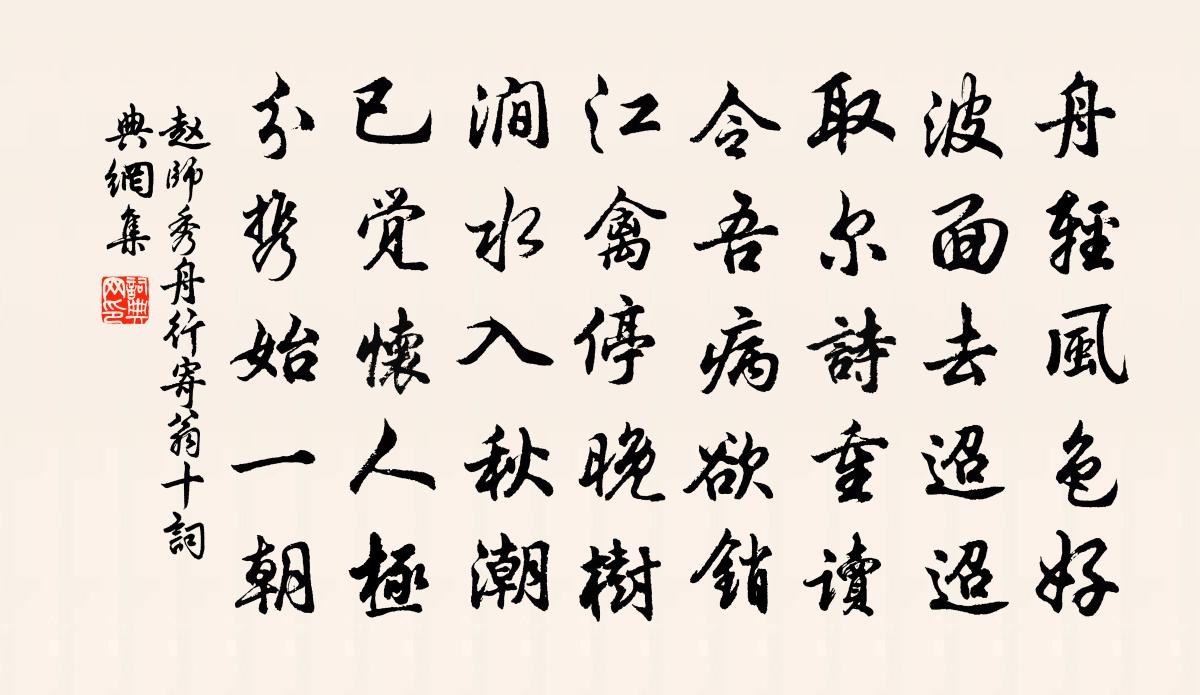 舟輕風色好
波面去迢迢
取尔詩重讀
令吾病欲銷
江禽停晚樹
澗水入秋潮
已覚懷人極
分携始一朝
赵師秀舟行寄翁十詞
典網集
詞典
网印